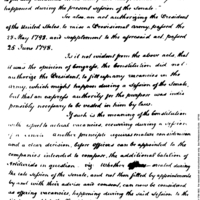 happened during the present session of the Senate.
See also an act authorizing the President
of the United States to raise a Provisional Army, passed the
28. May 1798. and supplement to the aforesaid act passed
25 June 1798.
Is it not evident from the above acts that
it was the opinion of Congress, the Constitution did not
authorize the President, to fill up any vacancies in the
Army, which might happen during a session of the Senate,
but that an express authority for the purpose was indispensibly necessary to be vested in him by law.
If such is the meaning of the Constitution
with respect to actual vacancies, occurring during a session
of a Senate. Another principle requires mature consideration
and a clear decision, before officers can be appointed to the
companies intended to compose, the additional battalion of
Artillerists in question. viz. Whether created during
the late session of the Senate, and not then filled by appointments
by and with their advice and consent, can now be considered
as offering vacancies, happening during the said session to the